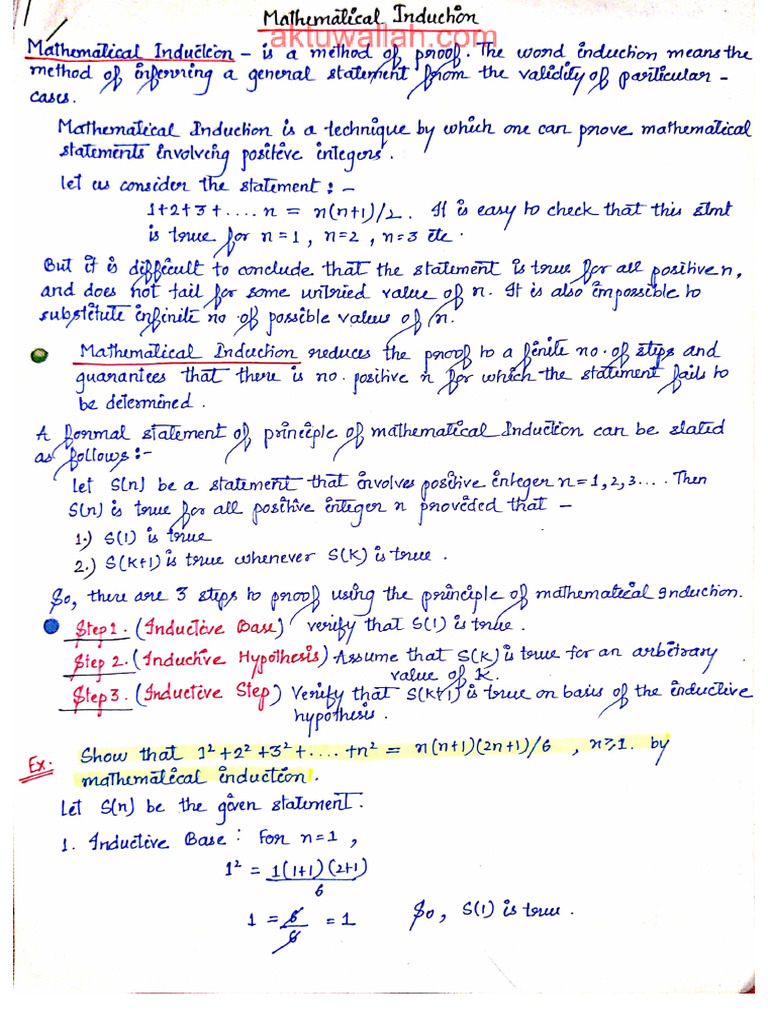 Mathematical Induction
aktuwallah.com
Mathematical Induction - is a method of proof. The word induction means the
method of inferring a general statement from the validity of particular -
cases.
Mathematical Induction is a technique by which one can prove mathematical
statements involving positive integers.
Let us consider the statement : -
1+2+3+ .... n = n(n+1)/2. It is easy to check that this stmt
is true for n=1, n=2, n=3 etc.
But it is difficult to conclude that the statement is true for all positive n,
and does not fail for some untried value of n. It is also impossible to
substitute infinite no. of possible values of n.
Mathematical Induction reduces the proof to a finite no. of steps and
guarantees that there is no. positive n for which the statement fails to
be determined.
A formal statement of principle of mathematical Induction can be stated
as follows:-
Let S(n) be a statement that involves positive integer n=1,2,3.... Then
S(n) is true for all positive integer n provided that -
1.) S(1) is true
2.) S(K+1) is true whenever S(K) is true.
So, there are 3 steps to proof using the principle of mathematical Induction.
Step 1. (Inductive Base) verify that S(1) is true.
Step 2. (Inductive Hypothesis) Assume that S(K) is true for an arbitrary
value of K.
Step 3. (Inductive Step) Verify that S(K+1) is true on basis of the inductive
hypothesis.
Ex: Show that 1²+2²+3²+....+n² = n(n+1)(2n+1)/6 , n≥1. by
mathematical induction.
Let S(n) be the given statement.
1. Inductive Base : For n=1 ,
1² = 1(1+1)(2+1)
6
1 = 6 = 1 So, S(1) is true.
6